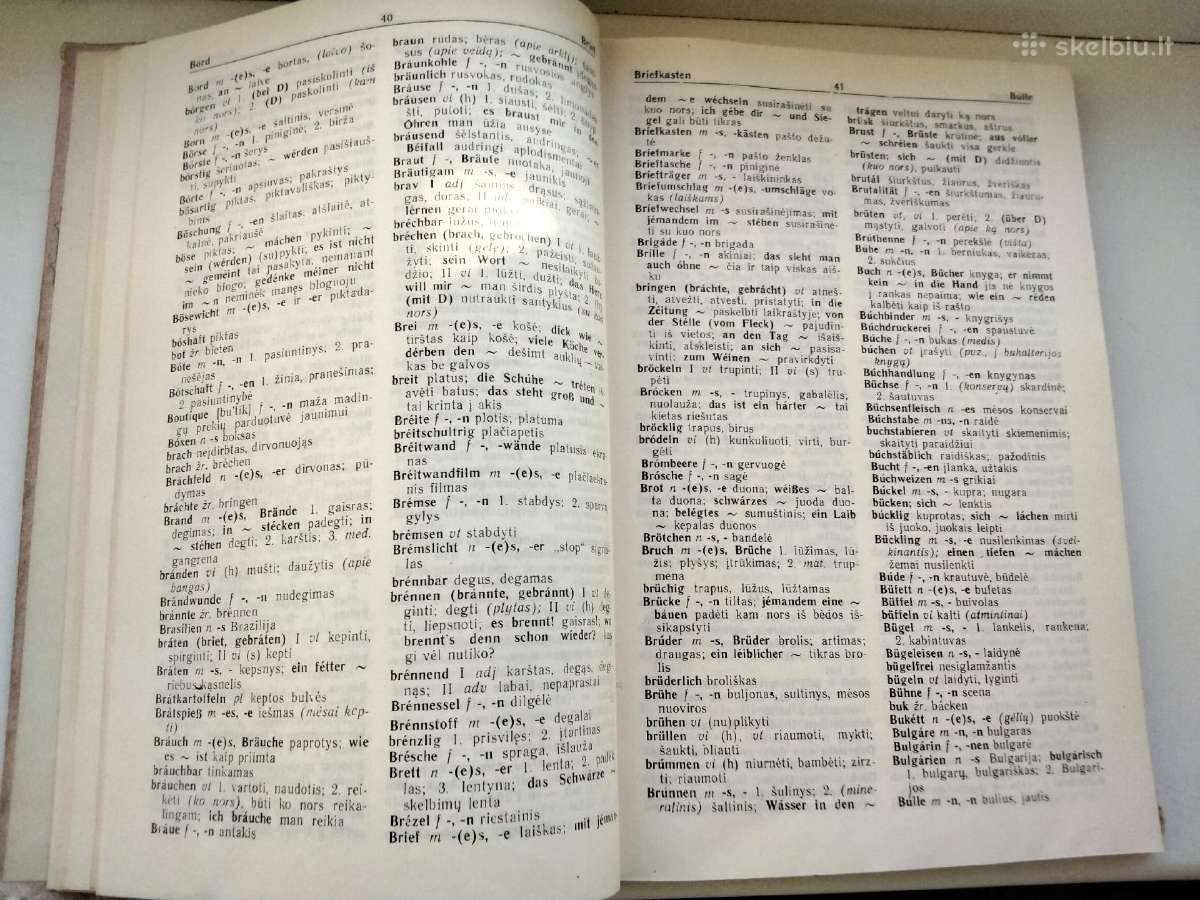 skelbiu.lt
Bord
40
Brief
Bord m -(e)s, -e bortas, (laivo) šo-
nas; an ~ laive
borgen vt 1. (bei D) pasiskolinti (iš
ko nors); 2. (D) paskolinti (kam
nors)
Born m -(e)s, -e šaltinis, versmė
Börse f -, -n 1. piniginė; 2. birža
Borste f -, -n šerys
borstig šeriuotas; ~ wérden pasišiauš-
ti, supykti
Borte f -, -n apsiuvas; pakraštys
bösartig piktas, piktavališkas; pikty-
binis
Böschung f -, -en šlaitas, atšlaitė, at-
kalnė, pakriaušė
böse piktas; ~ máchen pykinti; ~
sein (wérden) (su)pykti; es ist nicht
~ gemeint tai pasakyta, nemanant
nieko blogo; gedénke méiner nicht
im ~n neminėk manęs bloguoju
Bösewicht m -(e)s, -e ir -er piktada-
rys
bóshaft piktas
bot žr. bieten
Bóte m -n, -n 1. pasiuntinys; 2. pra-
nešėjas
Bótschaft f -, -en 1. žinia, pranešimas;
2 pasiuntinybė
Boutique [bu'tik] f -, -n maža madin-
gų prekių parduotuvė jaunimui
Bóxen n -s boksas
brach neįdirbtas, dirvonuojąs
brach žr. bréchen
Bráchfeld n -(e)s, -er dirvonas; pū-
dymas
bráchte žr. bringen
Brand m -(e)s, Brände 1. gaisras;
degimas; in ~ stécken padegti; in
~ stéhen degti; 2. karštis; 3. med.
gangrena
bránden vi (h) mušti; daužytis (apie
bangas)
Brándwunde f -, -n nudegimas
bránnte žr. brénnen
Brasílien n -s Brazilija
bráten (briet, gebráten) I vt kepinti,
spirginti; II vi (s) kepti
Bráten m -s, - kepsnys; ein fétter ~
riebus kąsnelis
Brátkartoffeln pl keptos bulvės
Brátspieß m -es, -e iešmas (mėsai kep-
ti)
Bráuch m -(e)s, Bräuche paprotys; wie
es ~ ist kaip priimta
bráuchbar tinkamas
bráuchen vt 1. vartoti, naudotis; 2. rei-
kėti (ko nors), būti ko nors reika-
lingam; ich bráuche man reikia
Bráue f -, -n antakis
braun rudas; bėras (apie arklį);
sus (apie veidą); ~ gebránnt įdegęs
Bráunkohle f -, -n rusvosios anglys
bräunlich rusvokas, rudokas
Bráuse f -, -n 1. dušas; 2. limonadas
bráusen vi (h) 1. siausti, šėlti; 2.
šti, putoti; es braust mir in den
Óhren man ūžia ausyse
bráusend šėlstantis, audringas;
Béifall audringi aplodismentai
Braut f -, Bräute nuotaka, jaunoji
Bräutigam m -s, -e jaunikis
brav I adj šaunus, drąsus,
gas, doras; II adv puikiai, gerai, ~
lérnen gerai mokytis
bréchbar lūžus,
bréchen (brach, gebróchen) I vt 1. lauž-
ti, skinti (gėlę); 2. pažeisti,
žyti; sein Wort ~ nesilaikyti
džio; II vi 1. lūžti, dužti; das Herz
will mir ~ man širdis plyšta; 2. (h)
(mit D) nutraukti santykius (su kuo
nors)
Brei m -(e)s, -e košė; dick wie ~
tirštas kaip košė; viele Köche ver-
dérben den ~ dešimt auklių — vai-
kas be galvos
breit platus; die Schúhe ~ tréten iš-
avėti batus; das sieht groß und ~
tai krinta į akis
Bréite f -, -n plotis; platuma
bréitschultrig plačiapetis
Bréitwand f -, -wände platusis ekra-
nas
Bréitwandfilm m -(e)s, -e plačiaekra-
nis filmas
Brémse f -, -n 1. stabdys; 2. sparva,
gylys
brémsen vt stabdyti
Brémslicht n -(e)s, -er „stop“ signa-
las
brénnbar degus, degamas
brénnen (bránnte, gebránnt) I vt de-
ginti; degti (plytas); II vi (h) deg-
ti, liepsnoti; es brennt! gaisras!; wo
brennt's denn schon wieder? ka-
gi vėl nutiko?
brénnend I adj karštas, degąs, deg-
nąs; II adv labai, nepaprastai
Brénnessel f -, -n dilgėlė
Brénnstoff m -(e)s, -e degalai
brénzlig 1. prisvilęs; 2. įtartinas
Brésche f -, -n spraga, išlauža
Brett n -(e)s, -er 1. lenta; 2. padėk-
las; 3. lentyna; das Schwárze ~
skelbimų lenta
Brézel f -, -n riestainis
Brief m -(e)s, -e laiškas; mit jéman-
Briefkasten
41
Bulle
dem ~e wéchseln susirašinėti su
kuo nors; ich gébe dir ~ und Sie-
gel gali būti tikras
Briefkasten m -s, -kästen pašto dėžu-
tė
Briefmarke f -, -n pašto ženklas
Brieftasche f -, -n piniginė
Briefträger m -s, - laiškininkas
Briefumschlag m -(e)s, -umschläge vo-
kas (laiškams)
Briefwechsel m -s susirašinėjimas; mit
jémandem im ~ stéhen susirašinė-
ti su kuo nors
Brigáde f -, -n brigada
Brille f -, -n akiniai; das sieht man
auch óhne ~ čia ir taip viskas aiš-
ku
bringen (bráchte, gebrácht) vt atneš-
ti, atvežti, atvesti, pristatyti; in die
Zéitung ~ paskelbti laikraštyje; von
der Stélle (vom Fleck) ~ pajudin-
ti iš vietos; an den Tag ~ išaiš-
kinti, atskleisti; an sich ~ pasisa-
vinti; zum Wéinen ~ pravirkdyti
bröckeln I vt trupinti; II vi (s) tru-
pėti
Brócken m -s, - trupinys, gabalėlis,
nuolauža; das ist ein hárter ~ tai
kietas riešutas
bröcklig trapus, birus
bródeln vi (h) kunkuliuoti, virti, bur-
gėti
Brómbeere f -, -n gervuogė
Brósche f -, -n sagė
Brot n -(e)s, -e duona; wéißes ~ bal-
ta duona; schwárzes ~ juoda duo-
na; belégtes ~ sumuštinis; ein Laib
~ kepalas duonos
Brötchen n -s, - bandelė
Bruch m -(e)s, Brüche 1. lūžimas, lū-
žis; plyšys; įtrūkimas; 2. mat. trup-
mena
brüchig trapus, lūžus, lūžtamas
Brücke f -, -n tiltas; jémandem eine ~
báuen padėti kam nors iš bėdos iš-
sikapstyti
Brúder m -s, Brüder brolis; artimas;
draugas; ein léiblicher ~ tikras bro-
lis
brüderlich broliškas
Brühe f -, -n buljonas, sultinys, mėsos
nuoviros
brühen vt (nu)plikyti
brüllen vi (h), vt riaumoti, mykti;
šaukti, bliauti
brúmmen vi (h) niurnėti, bambėti; zirz-
ti; riaumoti
Brunnen m -s, - 1. šulinys; 2. (mine-
ralinis) šaltinis; Wásser in den ~
trágen veltui daryti ką nors
brüsk šiurkštus, smarkus, aštrus
Brust f -, Brüste krūtinė; aus vóller
~ schréien šaukti visa gerkle
brüsten; sich ~ (mit D) didžiuotis
(kuo nors), puikauti
brutál šiurkštus, žiaurus, žvėriškas
Brutalität f -, -en šiurkštumas, žiauru-
mas, žvėriškumas
brüten vt, vi 1. perėti; 2. (über D)
mąstyti, galvoti (apie ką nors)
Brúthenne f -, -n perekšlė (višta)
Búbe m -n, -n 1. berniukas, vaikėzas;
2. sukčius
Buch n -(e)s, Bücher knyga; er nimmt
kein ~ in die Hand jis nė knygos
į rankas nepaima; wie ein ~ réden
kalbėti kaip iš rašto
Búchbinder m -s, - knygrišys
Búchdruckerei f -, -en spaustuvė
Búche f -, -n bukas (medis)
búchen vt įrašyti (pvz., į buhalterijos
knygą)
Búchhandlung f -, -en knygynas
Büchse f -, -n 1. (konservų) skardinė;
2. šautuvas
Büchsenfleisch n -es mėsos konservai
Búchstabe m -ns, -n raidė
buchstabíeren vt skaityti skiemenimis;
skaityti paraidžiui
búchstäblich raidiškas; pažodinis
Bucht f -, -en įlanka, užtakis
Búchweizen m -s grikiai
Búckel m -s, - kupra; nugara
bücken; sich ~ lenktis
búcklig kuprotas; sich ~ láchen mirti
iš juoko, juokais leipti
Bückling m -s, -e nusilenkimas (svei-
kinantis); einen tiefen ~ máchen
žemai nusilenkti
Búde f -, -n krautuvė, būdelė
Büfétt n -(e)s, -e bufetas
Büffel m -s, - buivolas
büffeln vi kalti (atmintinai)
Bügel m -s, - 1. lankelis, rankena;
2. kabintuvas
Bügeleisen n -s, - laidynė
bügelfrei nesiglamžantis
bügeln vt laidyti, lyginti
Bühne f -, -n scena
buk žr. bácken
Bukétt n -(e)s, -e (gėlių) puokštė
Bulgáre m -n, -n bulgaras
Bulgárin f -, -nen bulgarė
Bulgárien n -s Bulgarija; bulgárisch
1. bulgarų, bulgariškas; 2. Bulgari-
jos
Búlle m -n, -n bulius, jautis